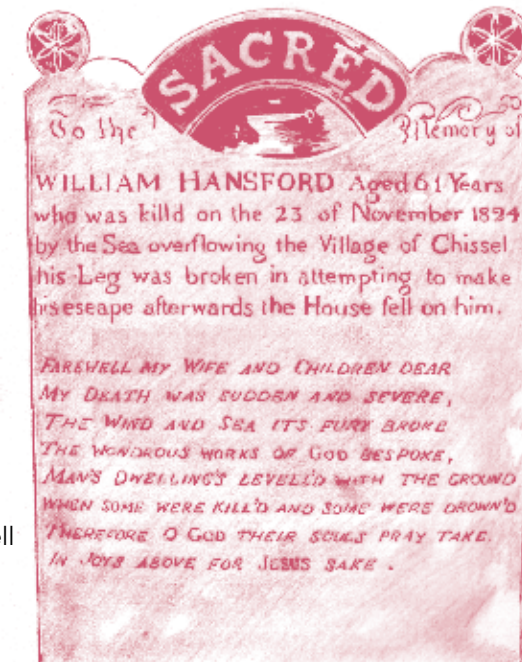 SACRED
To the Memory of
WILLIAM HANSFORD Aged 61 Years
who was killd on the 23 of November 1824
by the Sea overflowing the Village of Chissel
his Leg was broken in attempting to make
his eseape afterwards the House fell on him.
FAREWELL MY WIFE AND CHILDREN DEAR
MY DEATH WAS SUDDEN AND SEVERE,
THE WIND AND SEA ITS FURY BROKE
THE WONDROUS WORKS OF GOD BESPOKE,
MAN'S DWELLING'S LEVELL'D WITH THE GROUND
WHEN SOME WERE KILL'D AND SOME WERE DROWN'D
THEREFORE O GOD THEIR SOULS PRAY TAKE.
IN JOYS ABOVE FOR JESUS SAKE.
ll